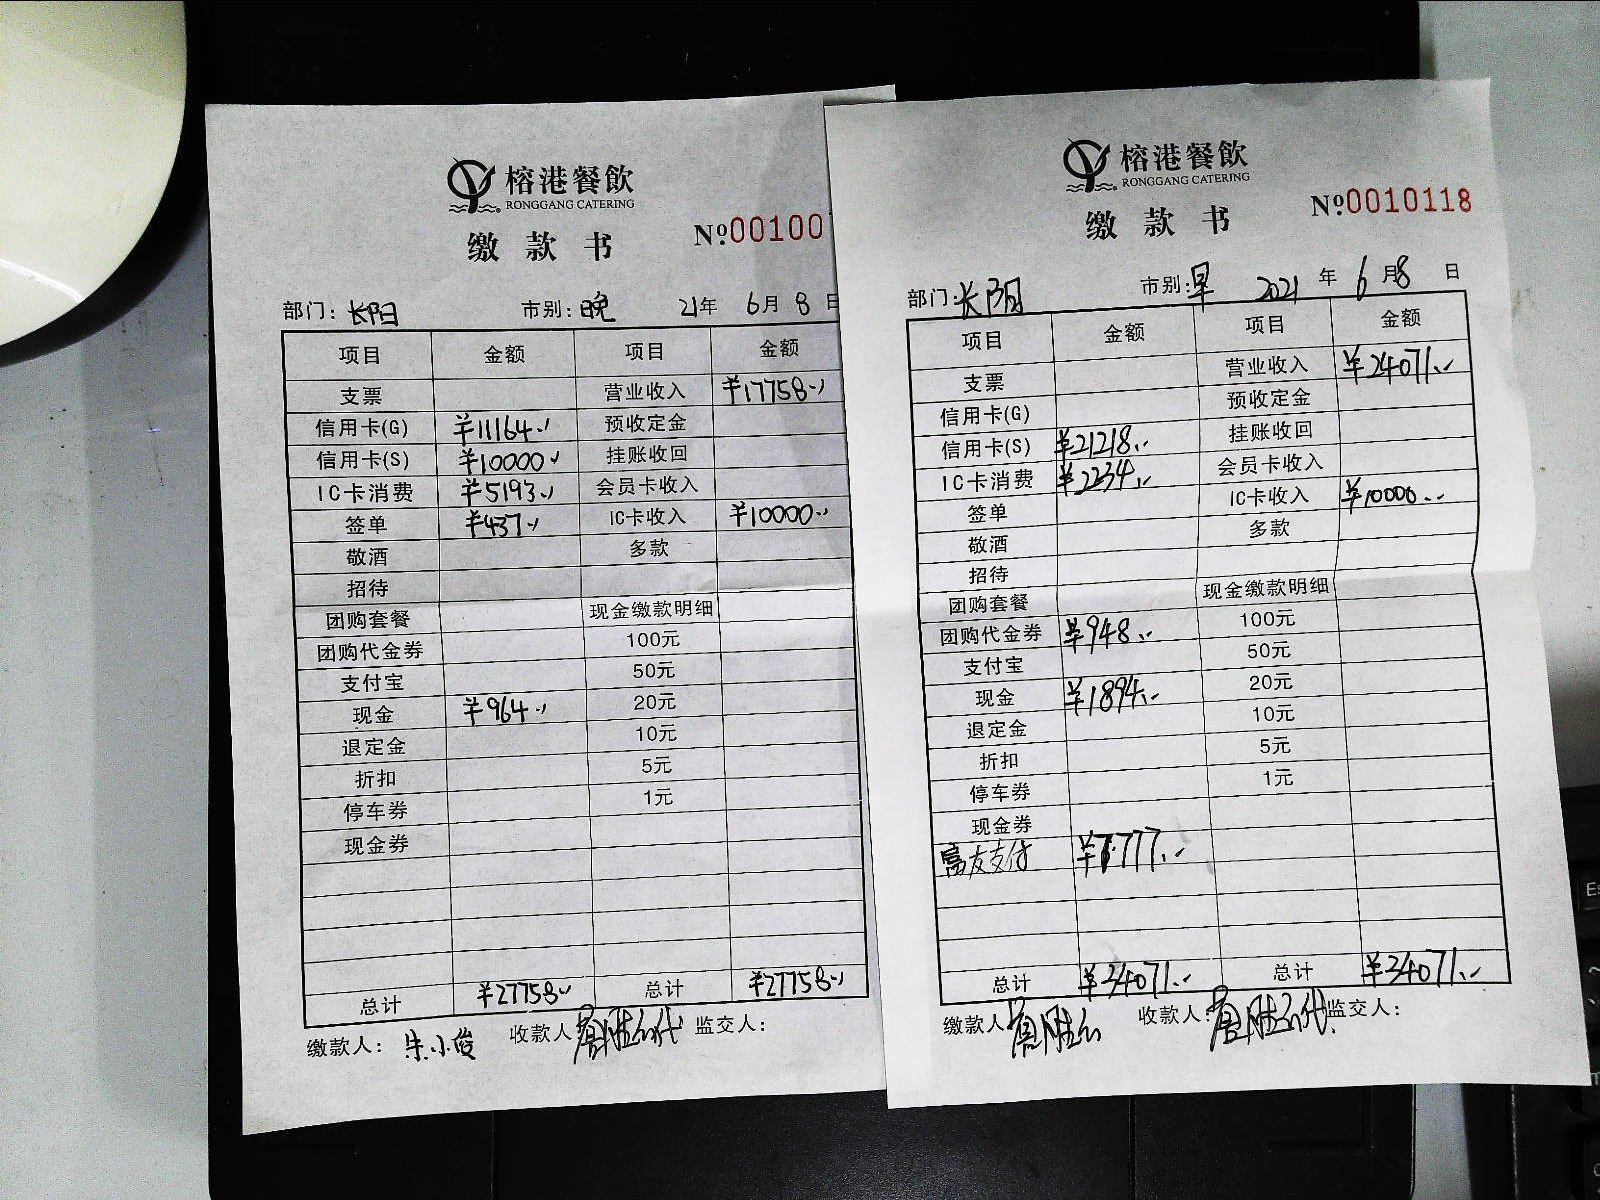 榕港餐飲
RONGGANG CATERING
缴款书
№00100
部门: 长阳 市别: 晚 21年 6月 8日
项目 金额 项目 金额
支票 营业收入 ¥17758.~
信用卡(G) ¥11164.~ 预收定金
信用卡(S) ¥10000.~ 挂账收回
IC卡消费 ¥5193.~ 会员卡收入
签单 ¥437.~ IC卡收入 ¥10000.~
敬酒 多款
招待
团购套餐 现金缴款明细
团购代金券 100元
支付宝 50元
现金 ¥964.~ 20元
退定金 10元
折扣 5元
停车券 1元
现金券
总计 ¥27758.~ 总计 ¥27758.~
缴款人: 朱小俊 收款人 监交人:
榕港餐飲
RONGGANG CATERING
缴款书
№0010118
部门: 长阳 市别: 早 2021年 6月8日
项目 金额 项目 金额
支票 营业收入 ¥24071.~
信用卡(G) 预收定金
信用卡(S) ¥21218.~ 挂账收回
IC卡消费 ¥2234.~ 会员卡收入
签单 IC卡收入 ¥10000.~
敬酒 多款
招待
团购套餐 现金缴款明细
团购代金券 ¥948.~ 100元
支付宝 50元
现金 ¥1894.~ 20元
退定金 10元
折扣 5元
停车券 1元
现金券
富友支付 ¥7777.~
总计 ¥34071.~ 总计 ¥34071.~
缴款人 收款人: 监交人: